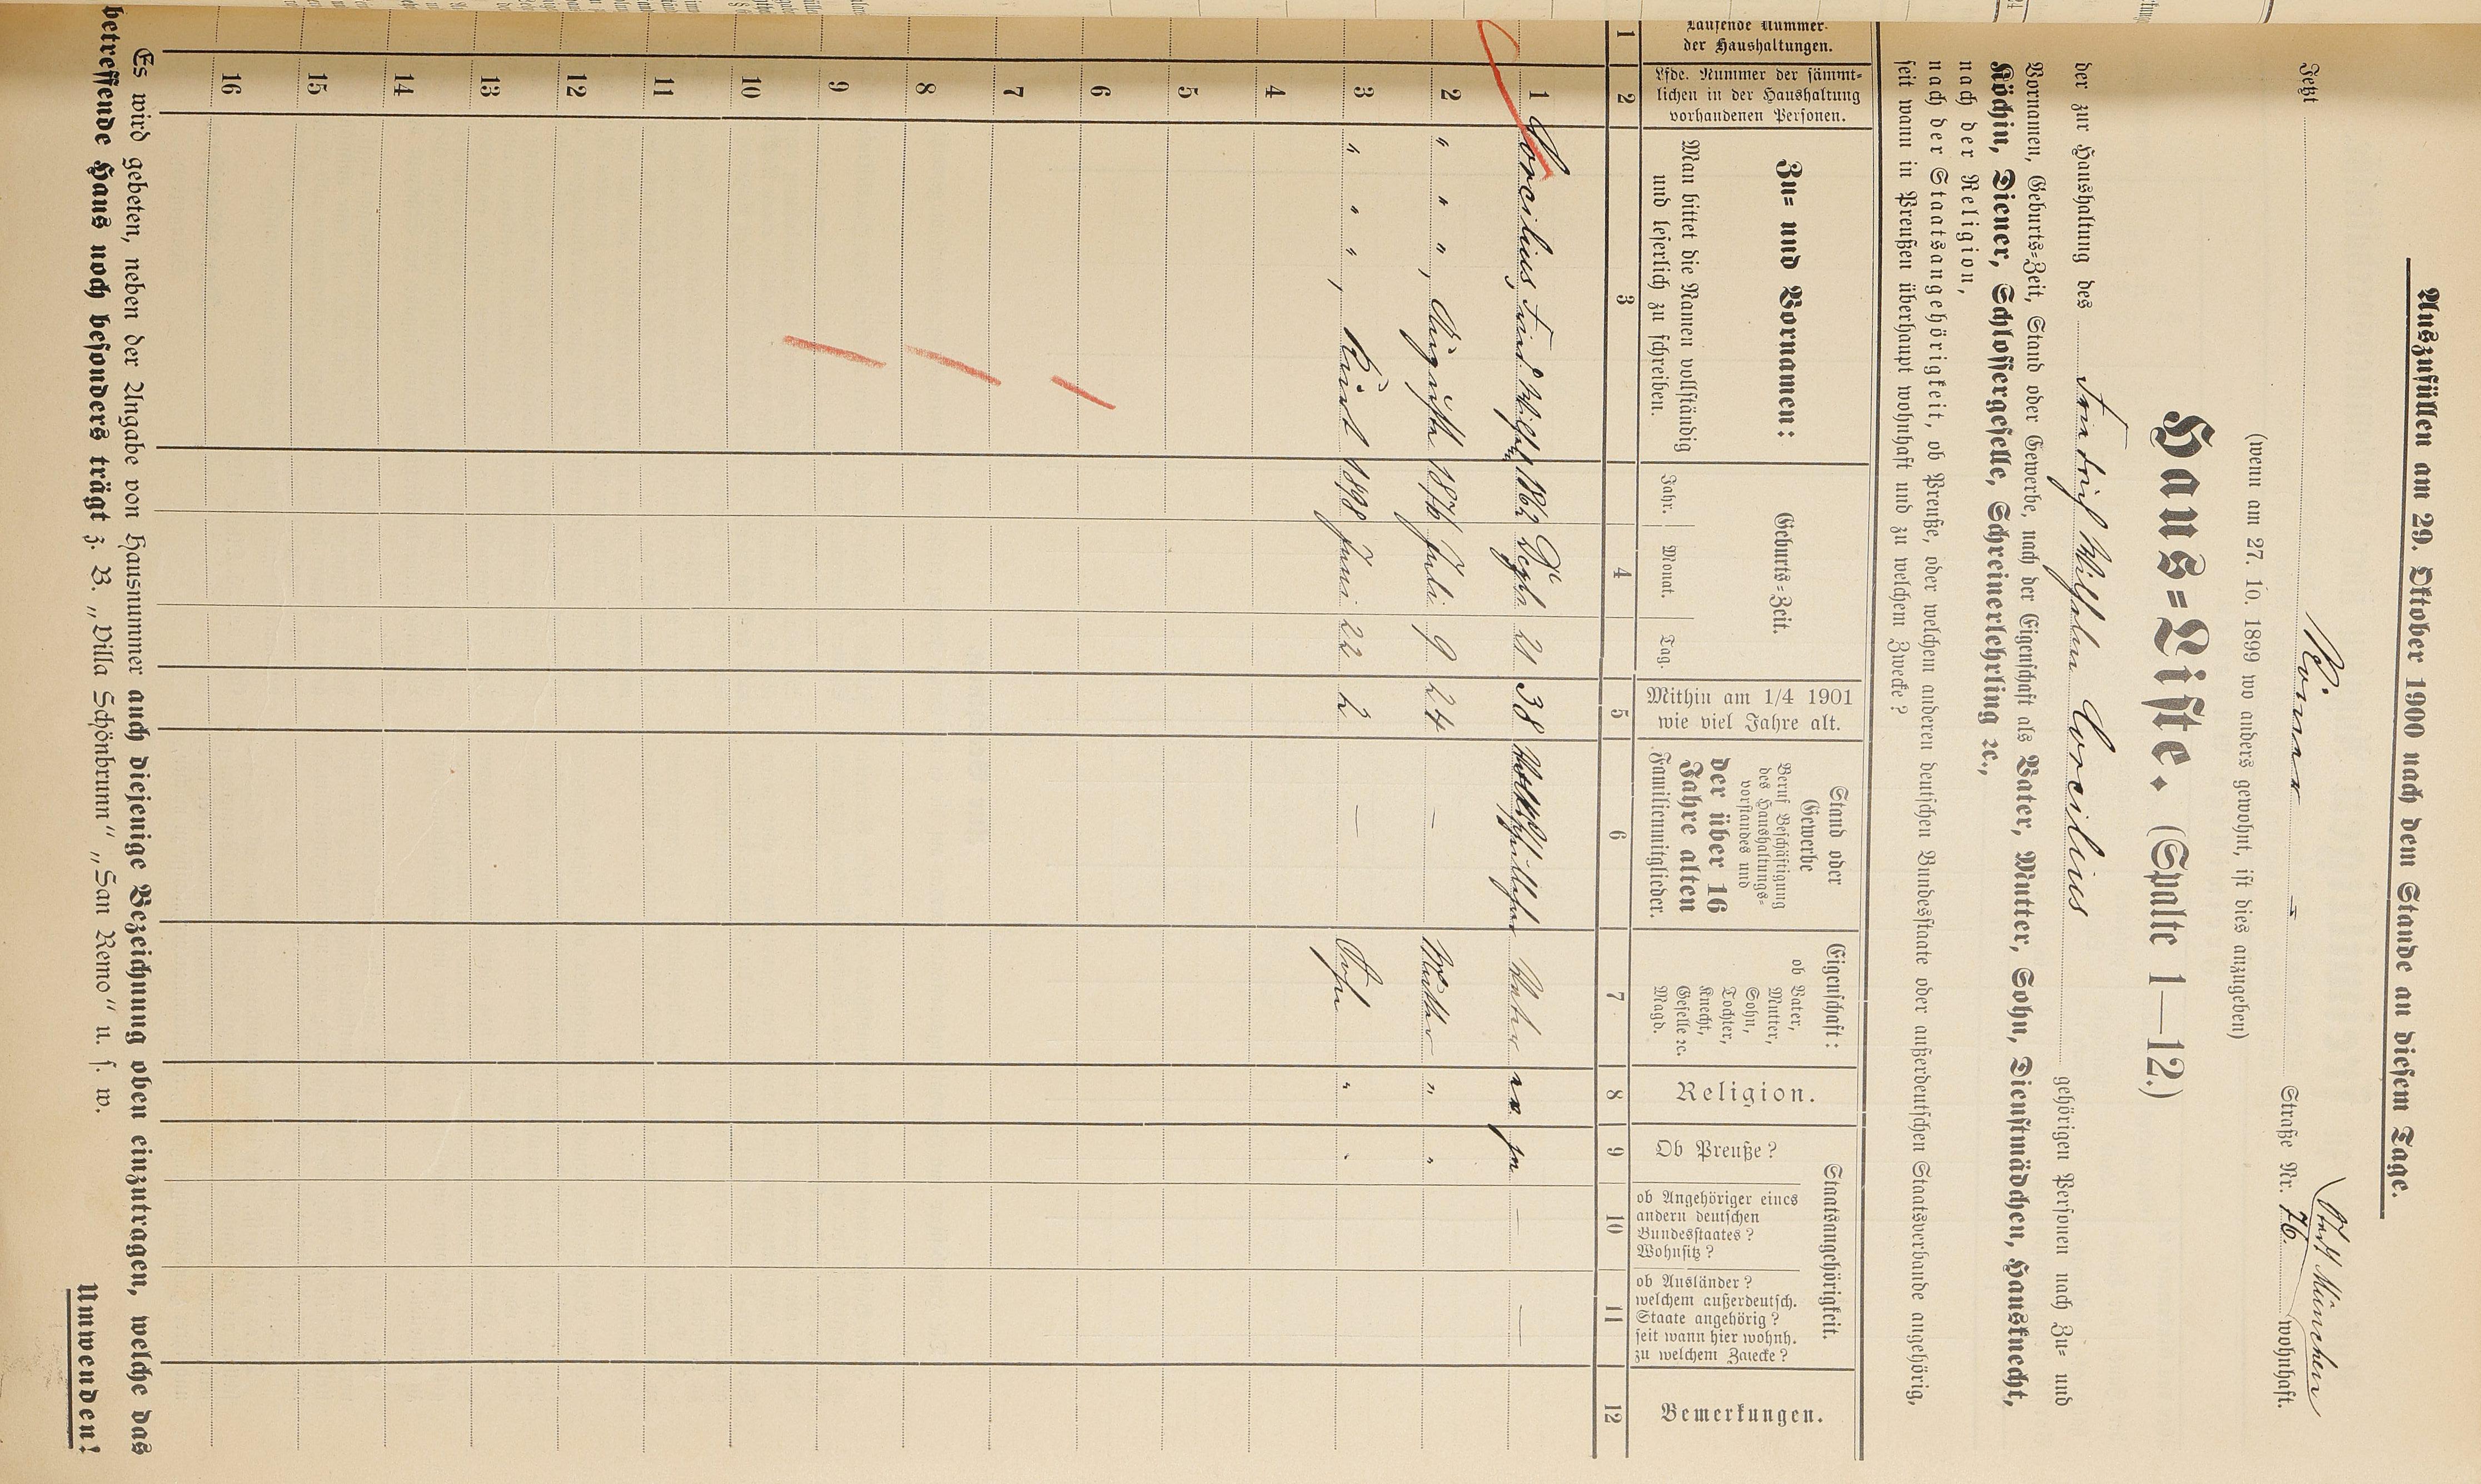 Auszufüllen am 29. Oktober 1900 nach dem Stande an diesem Tage.
Jetzt Kölner - Straße Nr. 76. wohnhaft.
(Stadt München)
(wenn am 27. 10. 1899 wo anders gewohnt, ist dies anzugeben)
Haus=Liste. (Spalte 1—12.)
der zur Haushaltung des Friedrich Wilhelm Corcilius gehörigen Personen nach Zu= und
Vornamen, Geburts=Zeit, Stand oder Gewerbe, nach der Eigenschaft als Vater, Mutter, Sohn, Dienstmädchen, Hausknecht,
Köchin, Diener, Schlossergeselle, Schreinerlehrling ꝛc.,
nach der Religion,
nach der Staatsangehörigkeit, ob Preuße, oder welchem anderen deutschen Bundesstaate oder außerdeutschen Staatsverbande angehörig,
seit wann in Preußen überhaupt wohnhaft und zu welchem Zwecke?
Laufende Nummer der Haushaltungen.
Lfde. Nummer der sämmt=
lichen in der Haushaltung
vorhandenen Personen.
Zu= und Vornamen:
Man bittet die Namen vollständig
und leserlich zu schreiben.
Geburts=Zeit.
Jahr. Monat. Tag.
Mithin am 1/4 1901
wie viel Jahre alt.
Stand oder
Gewerbe
Beruf Beschäftigung
des Haushaltungs=
vorstandes und
der über 16
Jahre alten
Familienmitglieder.
Eigenschaft:
ob
Vater,
Mutter,
Sohn,
Tochter,
Knecht,
Geselle ꝛc.
Magd.
Religion.
Staatsangehörigkeit.
Ob Preuße?
ob Angehöriger eines
andern deutschen
Bundesstaates?
Wohnsitz?
ob Ausländer?
welchem außerdeutsch.
Staate angehörig?
seit wann hier wohnh.
zu welchem Zwecke?
Bemerkungen.
1 2 3 4 5 6 7 8 9 10 11 12
1 Corcilius, Fried. Wilhelm 1862 Septb. 21 38 Vater ev ja — —
2 " " ", Auguste 1876 Juli 9 24 — Mutter " "
3 " " ", Kurt 1898 Juni 22 2 — Sohn " "
4
5
6
7
8
9
10
11
12
13
14
15
16
Es wird gebeten, neben der Angabe von Hausnummer auch diejenige Bezeichnung oben einzutragen, welche das
betreffende Haus noch besonders trägt z. B. „Villa Schönbrunn“ „San Remo“ u. s. w.
Umwenden!